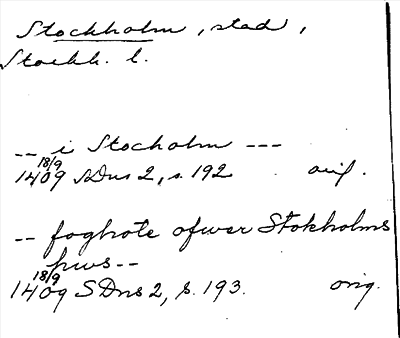 Stockholm, stad,
Stockh. l.
-- i Stocholm ---
18/9
1409 SDns 2, s. 192 orig.
-- foghote ofwer Stokholms
hws --
18/9
1409 SDns 2, s. 193. orig.